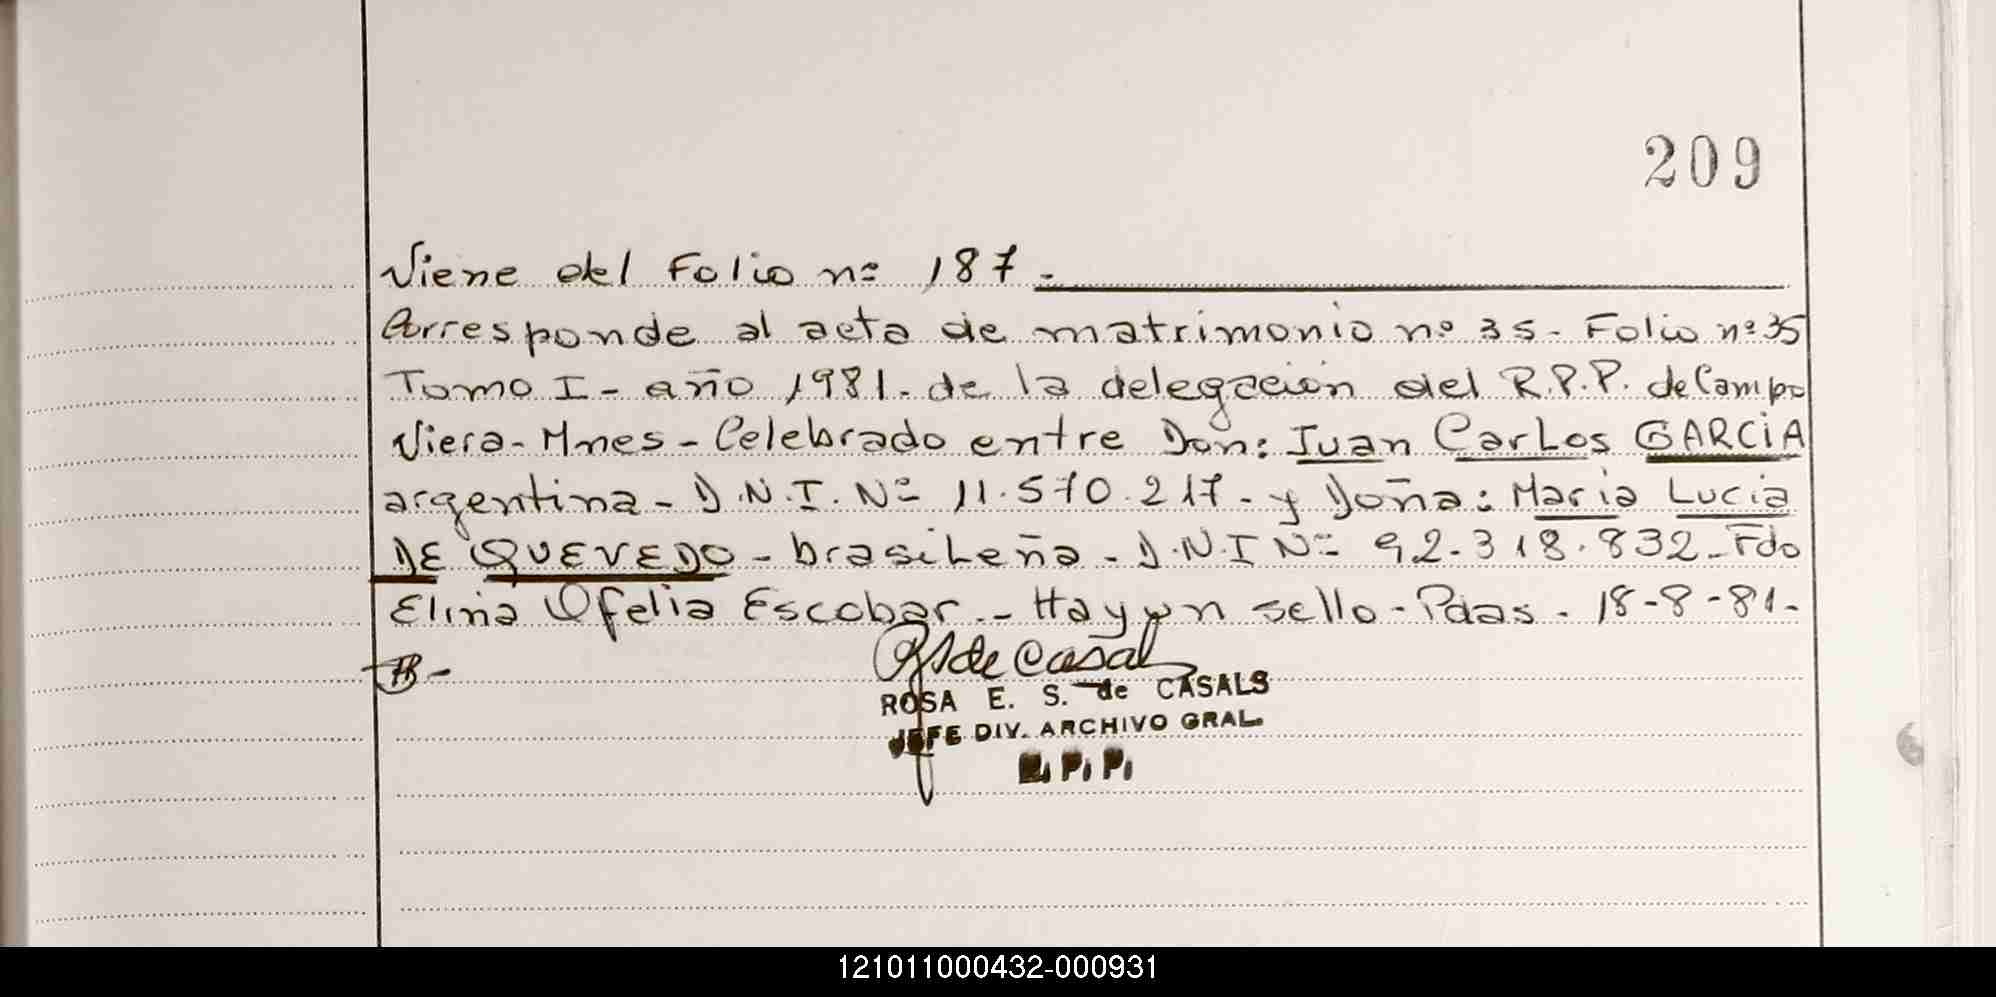 209
Viene del Folio nº 187.-
Corresponde al acta de matrimonio nº 35 - Folio nº 35
Tomo I - año 1981. de la delegación del R.P.P. de Campo
Viera - Mnes - Celebrado entre Don: Juan Carlos GARCIA
argentina - D.N.I. Nº 11.510.217 - y Doña: Maria Lucia
DE QUEVEDO - brasileña - D.N.I Nº 92.318.832 - Fdo
Elina Ofelia Escobar. - Hay un sello - Pdas. 18-8-81.-
ROSA E. S. de CASALS
JEFE DIV. ARCHIVO GRAL.
R. P. P.
121011000432-000931